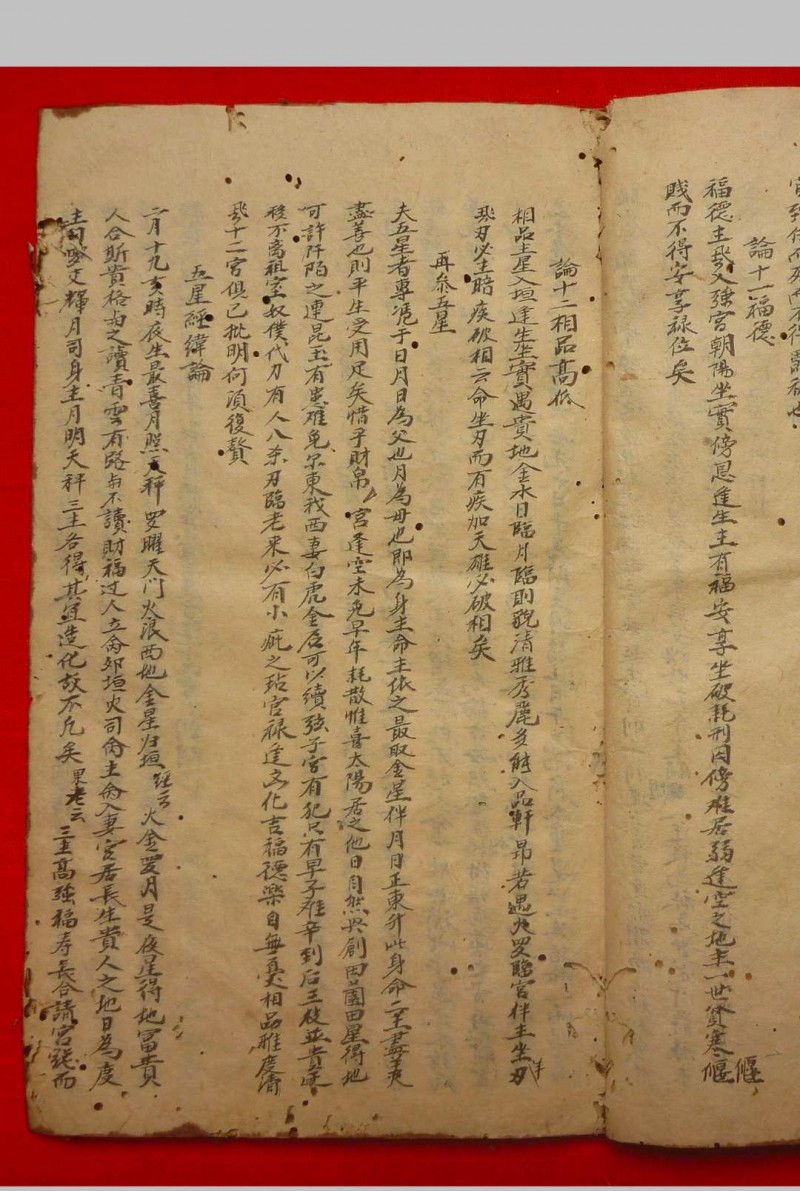 論十一福德
福德主飛入強宮朝陽坐實傍恩逢生主有福安享坐破耗刑囚傍难居弱逢空之地主一世貧寒偃
賤而不得安享禄位矣
論十二相品高低
相品主星入垣逢生坐實遇貴地金水日臨月臨則貌清雅秀麗多能人品軒昂若遇火罗臨宮伴主坐刃
飛刃必主暗疾破相云命坐刃而有疾加天雄必破相矣
再叅五星
夫五星者專憑于日月日為父也月為母也即為身主命主依之最取金星伴月日正東升此身命二主尽美
盡善也則平生受用足矣惜乎財帛宮逢空未免早年耗散惟喜太陽居之他日自然興創田園田星得地
可許阡陌之連昆玉有患难免尔東我西妻白虎金居可以續弦子宮有犯只有早子难辛到后三枝並貴遷
移不离祖室奴僕代力有人八杀刃臨老来必有小疵之玷官禄逢文化吉福德樂自無憂相品雅度清
飛十二宮俱已批明何須復贅
五星經緯論
二月十九亥時夜生最喜月照天秤罗曜天门火浪西地金星归垣經云火金罗月是夜星得地富貴
人合斯貴格为之讀青雲有路为不讀財福过人立命卯垣火司命主命入妻宮居長生貴人之地日為度
主司文輝月司身主月明天秤三主各得其宜造化故不凡矣果老云三主高強福寿長合諸宮疏而